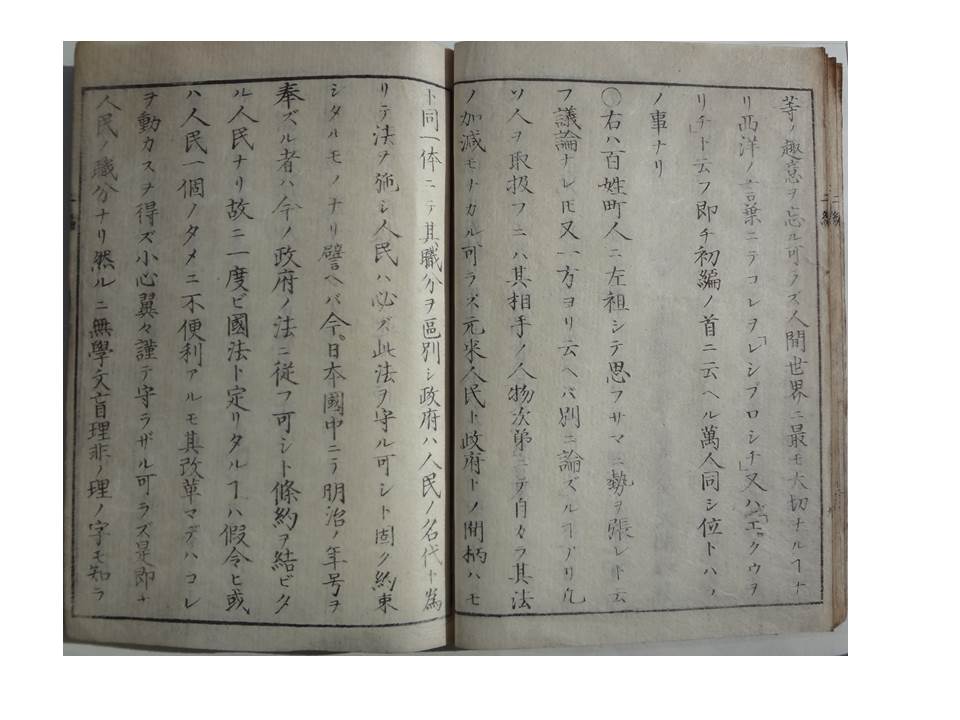 等ノ趣意ヲ忘ル可ラズ人間世界ニ最モ大切ナルヿナ
リ西洋ノ言葉ニテコレヲ「レシプロシチ」又ハエクウヲ
リチ」ト云フ即チ初編ノ首ニ云ヘル萬人同シ位トハノ
ノ事ナリ
○右ハ百姓町人ニ左袒シテ思フサマニ勢ヲ張レト云
フ議論ナレ𪜈又一方ヨリ云ヘバ別ニ論ズルヿアリ凢
ソ人ヲ取扱フニハ其相手ノ人物次第ニテ自カラ其法
ノ加減モナカル可ラズ元来人民ト政府トノ間柄ハモ
ト同一体ニテ其職分ヲ區別シ政府ハ人民ノ名代ト為
リテ法ヲ施シ人民ハ必ズ此法ヲ守ル可シト固ク約束
シタルモノナリ譬ヘバ今日本國中ニテ明治ノ年号ヲ
奉ズル者ハ今ノ政府ノ法ニ従フ可シト條約ヲ結ビタ
ル人民ナリ故ニ一度ビ國法ト定リタルヿハ假令ヒ或
ハ人民一個ノタメニ不便利アルモ其改革マデハコレ
ヲ動カスヲ得ズ小心翼々謹テ守ラザル可ラズ是即ナ
人民ノ職分ナリ然ルニ無學文盲理非ノ理ノ字モ知ラ